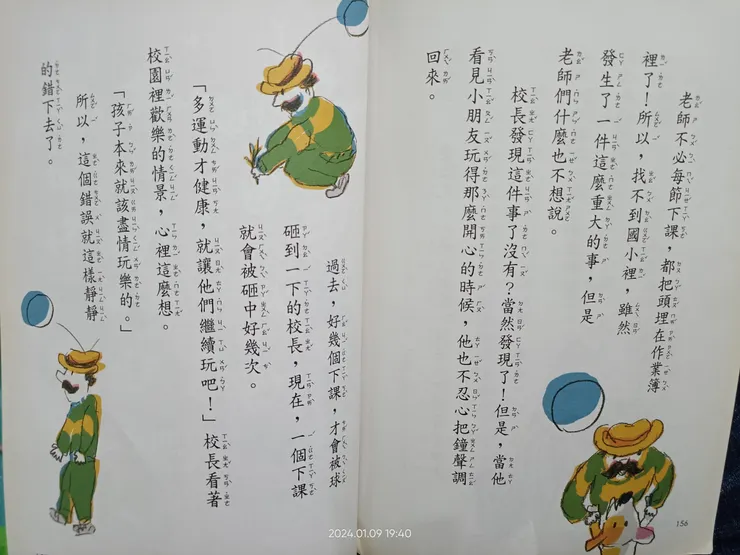 老師不必每節下課，都把頭埋在作業簿
裡了！所以，找不到國小裡，雖然
發生了一件這麼重大的事，但是
老師們什麼也不想說。
校長發現這件事了沒有？當然發現了！但是，當他
看見小朋友玩得那麼開心的時候，他也不忍心把鐘聲調
回來。
156
過去，好幾個下課，才會被球
砸到一下的校長，現在，一個下課
就會被砸中好幾次。
「多運動才健康，就讓他們繼續玩吧！」校長看著
校園裡歡樂的情景，心裡這麼想。
「孩子本來就該盡情玩樂的。」
所以，這個錯誤就這樣靜靜
的錯下去了。
2024.01.09 19:40